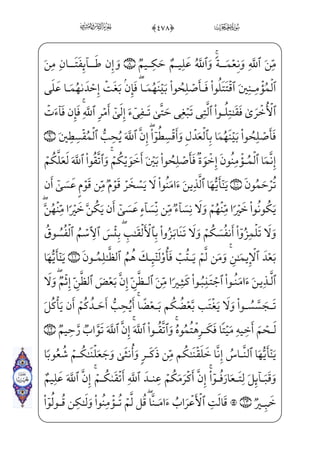 ﴿٤٧٨﴾
مِّنَ ٱللَّهِ وَنِعْمَةً ۚ وَٱللَّهُ عَلِيمٌ حَكِيمٌ ﴿٨﴾ وَإِن طَآئِفَتَانِ مِنَ
ٱلْمُؤْمِنِينَ ٱقْتَتَلُوا۟ فَأَصْلِحُوا۟ بَيْنَهُمَا ۖ فَإِنۢ بَغَتْ إِحْدَىٰهُمَا عَلَى
ٱلْأُخْرَىٰ فَقَٰتِلُوا۟ ٱلَّتِى تَبْغِى حَتَّىٰ تَفِىٓءَ إِلَىٰٓ أَمْرِ ٱللَّهِ ۚ فَإِن فَآءَتْ
فَأَصْلِحُوا۟ بَيْنَهُمَا بِٱلْعَدْلِ وَأَقْسِطُوٓا۟ ۖ إِنَّ ٱللَّهَ يُحِبُّ ٱلْمُقْسِطِينَ ﴿٩﴾
إِنَّمَا ٱلْمُؤْمِنُونَ إِخْوَةٌ فَأَصْلِحُوا۟ بَيْنَ أَخَوَيْكُمْ ۚ وَٱتَّقُوا۟ ٱللَّهَ لَعَلَّكُمْ
تُرْحَمُونَ ﴿١٠﴾ يَٰٓأَيُّهَا ٱلَّذِينَ ءَامَنُوا۟ لَا يَسْخَرْ قَوْمٌ مِّن قَوْمٍ عَسَىٰٓ أَن
يَكُونُوا۟ خَيْرًا مِّنْهُمْ وَلَا نِسَآءٌ مِّن نِّسَآءٍ عَسَىٰٓ أَن يَكُنَّ خَيْرًا مِّنْهُنَّ ۖ
وَلَا تَلْمِزُوٓا۟ أَنفُسَكُمْ وَلَا تَنَابَزُوا۟ بِٱلْأَلْقَٰبِ ۖ بِئْسَ ٱلِٱسْمُ ٱلْفُسُوقُ
بَعْدَ ٱلْإِيمَٰنِ ۚ وَمَن لَّمْ يَتُبْ فَأُو۟لَٰٓئِكَ هُمُ ٱلظَّٰلِمُونَ ﴿١١﴾ يَٰٓأَيُّهَا
ٱلَّذِينَ ءَامَنُوا۟ ٱجْتَنِبُوا۟ كَثِيرًا مِّنَ ٱلظَّنِّ إِنَّ بَعْضَ ٱلظَّنِّ إِثْمٌ ۖ وَلَا
تَجَسَّسُوا۟ وَلَا يَغْتَب بَّعْضُكُم بَعْضًا ۚ أَيُحِبُّ أَحَدُكُمْ أَن يَأْكُلَ
لَحْمَ أَخِيهِ مَيْتًا فَكَرِهْتُمُوهُ ۚ وَٱتَّقُوا۟ ٱللَّهَ ۚ إِنَّ ٱللَّهَ تَوَّابٌ رَّحِيمٌ ﴿١٢﴾
يَٰٓأَيُّهَا ٱلنَّاسُ إِنَّا خَلَقْنَٰكُم مِّن ذَكَرٍ وَأُنثَىٰ وَجَعَلْنَٰكُمْ شُعُوبًا
وَقَبَآئِلَ لِتَعَارَفُوٓا۟ ۚ إِنَّ أَكْرَمَكُمْ عِندَ ٱللَّهِ أَتْقَىٰكُمْ ۚ إِنَّ ٱللَّهَ عَلِيمٌ
خَبِيرٌ ﴿١٣﴾ ۞ قَالَتِ ٱلْأَعْرَابُ ءَامَنَّا ۖ قُل لَّمْ تُؤْمِنُوا۟ وَلَٰكِن قُولُوٓا۟